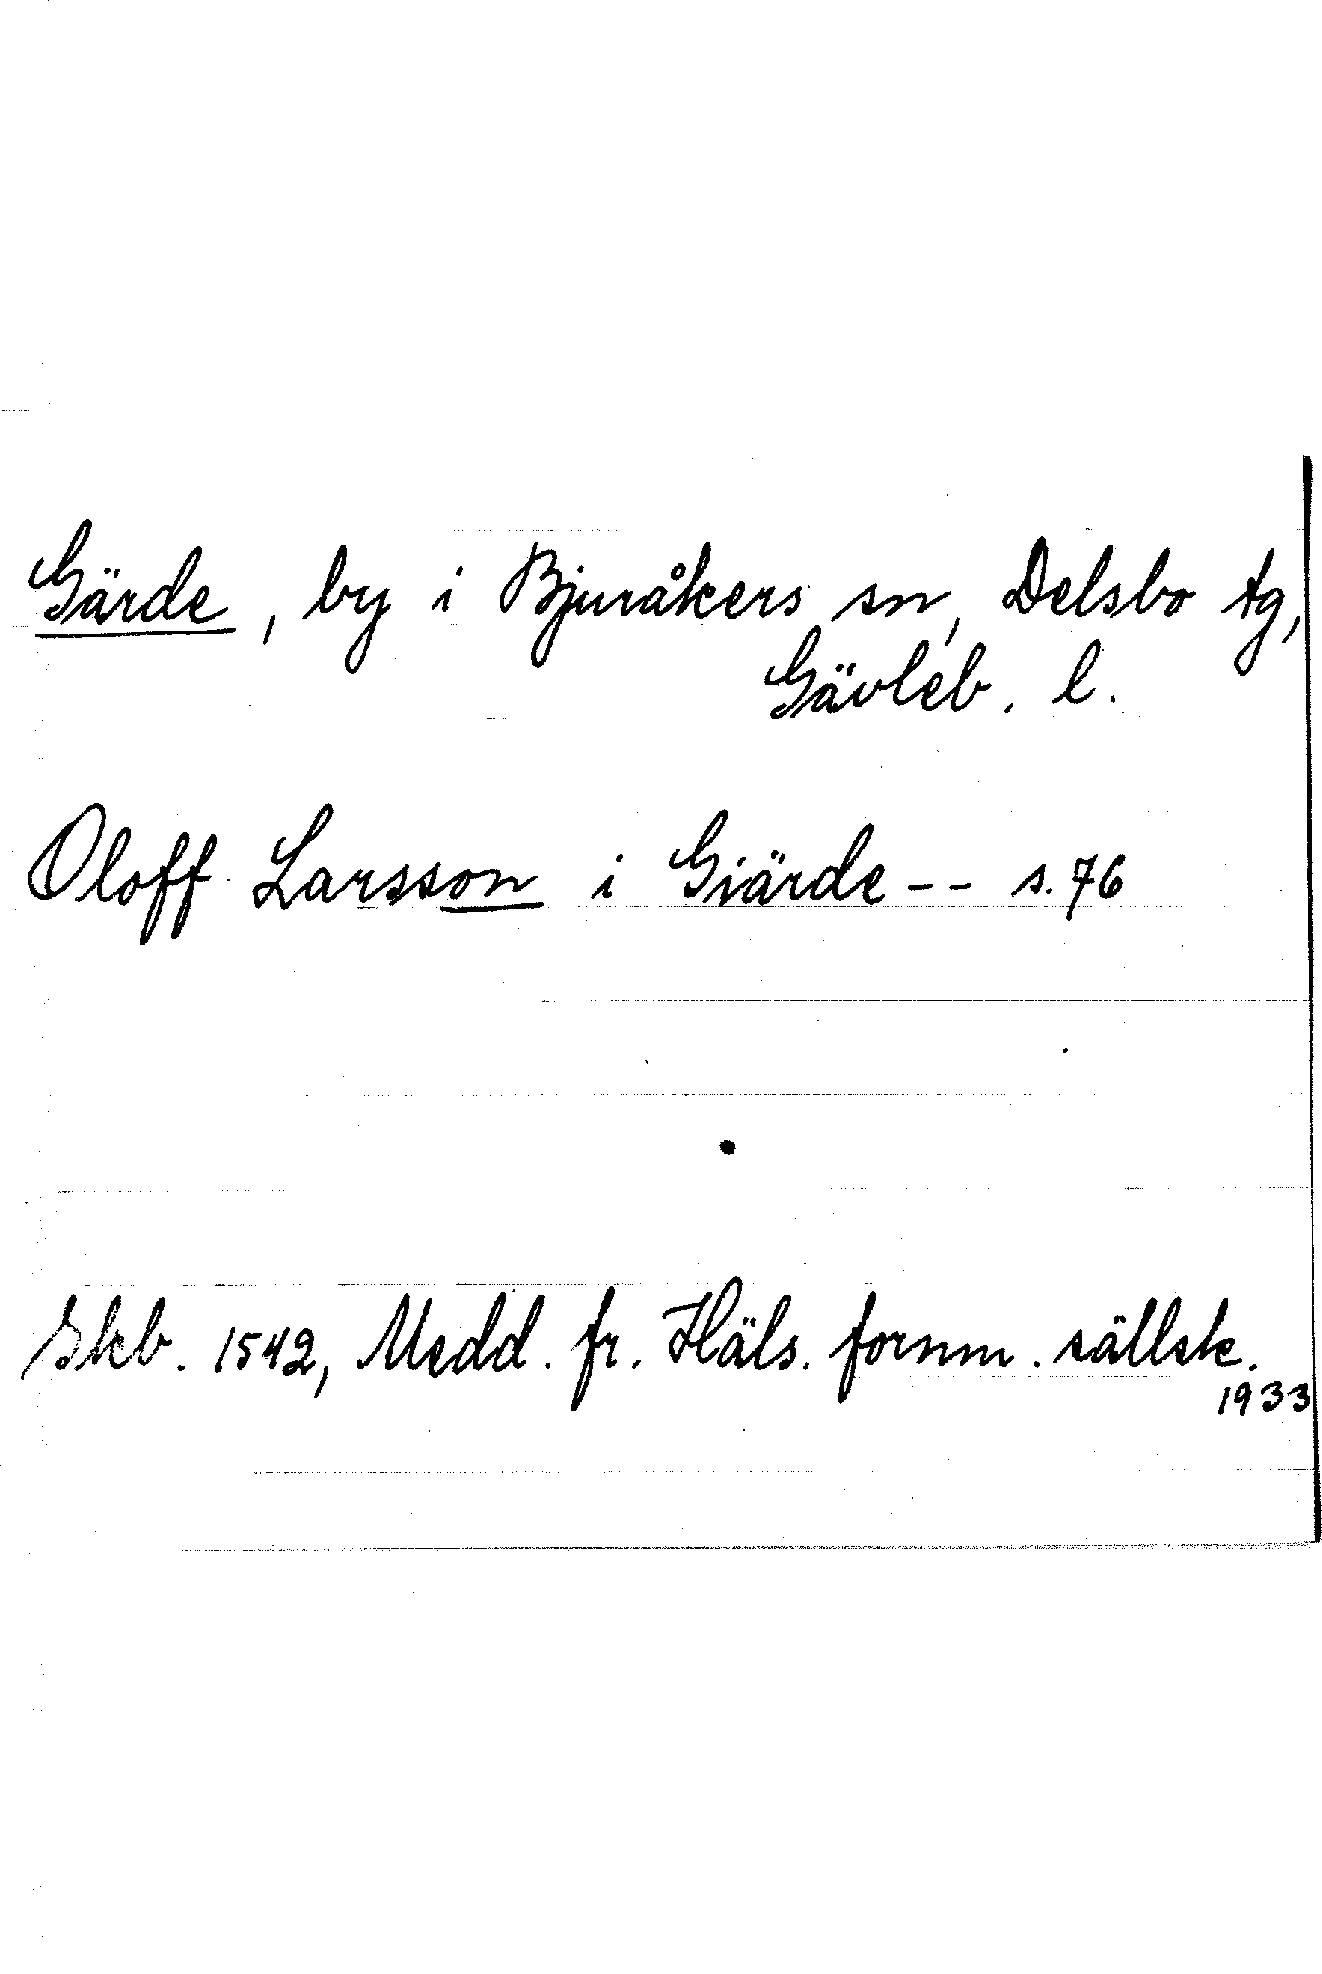 Gärde, by i Bjuråkers sn, Delsbo tg,
Gävleb. l.
Oloff Larsson i Giärde -- s. 76
Skb. 1542, Medd. fr. Häls. fornm. sällsk.
1933